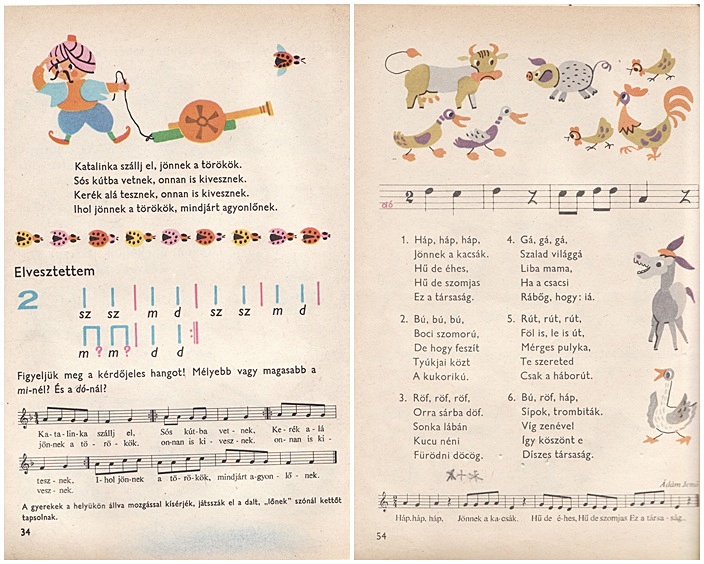 Katalinka szállj el, jönnek a törökök.
Sós kútba vetnek, onnan is kivesznek.
Kerék alá tesznek, onnan is kivesznek.
Ihol jönnek a törökök, mindjárt agyonlőnek.
Elvesztettem
2
sz sz m d sz sz m d
m ? m ? d d
Figyeljük meg a kérdőjeles hangot! Mélyebb vagy magasabb a
mi-nél? És a dó-nál?
Ka-ta-lin-ka szállj el, Sós kút-ba vet-nek, Ke-rék a-lá
jön-nek a tö-rö-kök. on-nan is ki-vesz-nek. on-nan is ki-
tesz-nek, I-hol jön-nek a tö-rö-kök, mindjárt a-gyon-lő-nek.
vesz-nek.
A gyerekek a helyükön állva mozgással kísérjék, játsszák el a dalt, „lőnek” szónál kettőt
tapsolnak.
34
2
1. Háp, háp, háp,
Jönnek a kacsák.
Hű de éhes,
Hű de szomjas
Ez a társaság.
2. Bú, bú, bú,
Boci szomorú,
De hogy feszít
Tyúkjai közt
A kukorikú.
3. Röf, röf, röf,
Orra sárba döf.
Sonka lábán
Kucu néni
Fürödni döcög.
4. Gá, gá, gá,
Szalad világgá
Liba mama,
Ha a csacsi
Rábőg, hogy: iá.
5. Rút, rút, rút,
Föl is, le is út,
Mérges pulyka,
Te szereted
Csak a háborút.
6. Bú, röf, háp,
Sípok, trombiták.
Víg zenével
Így köszönt e
Díszes társaság.
Ádám Jenő
Háp, háp, háp, Jönnek a ka-csák. Hű de é-hes, Hű de szomjas Ez a társa-ság.
54